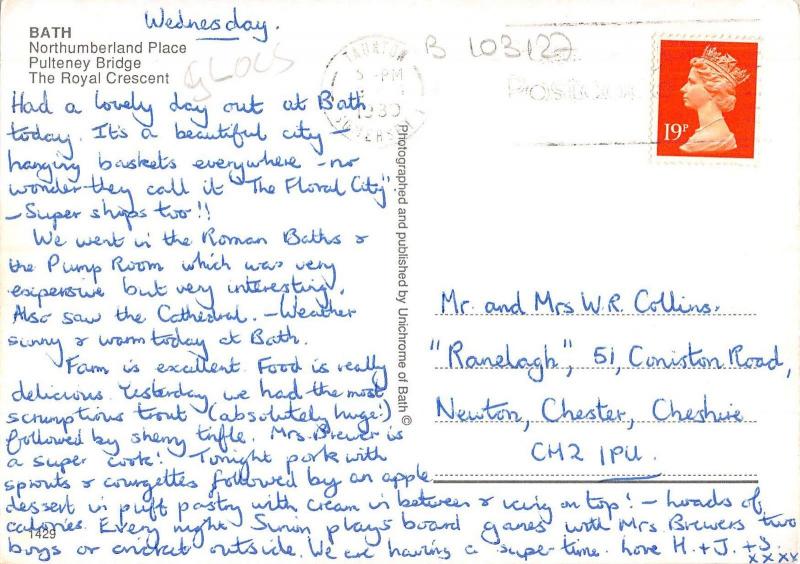 Wednesday.
BATH
Northumberland Place
Pulteney Bridge
The Royal Crescent
GLOCS
B 103127
TAUNTON
5 - PM
19P
Had a lovely day out at Bath
today. It's a beautiful city –
hanging baskets everywhere – no
wonder they call it "The Floral City".
– Super shops too!!
We went in the Roman Baths &
the Pump Room which was very
expensive but very interesting.
Also saw the Cathedral. – Weather
sunny & warm today at Bath.
Farm is excellent. Food is really
delicious. Yesterday we had the most
scrumptious trout (absolutely huge!)
followed by sherry trifle. Mrs. Brewer is
a super cook! Tonight pork with
sprouts & courgettes followed by an apple
dessert in puff pastry with cream in between & icing on top! – hoads of
calories. Every night Simon plays board games with Mrs Brewers two
boys or cricket outside. We are having a super time. Love H. + J. + S.
xxxx
1429
Photographed and published by Unichrome of Bath ©
Mr. and Mrs W.R. Collins,
"Ranelagh", 51, Coniston Road,
Newton, Chester, Cheshire
CH2 1PU.